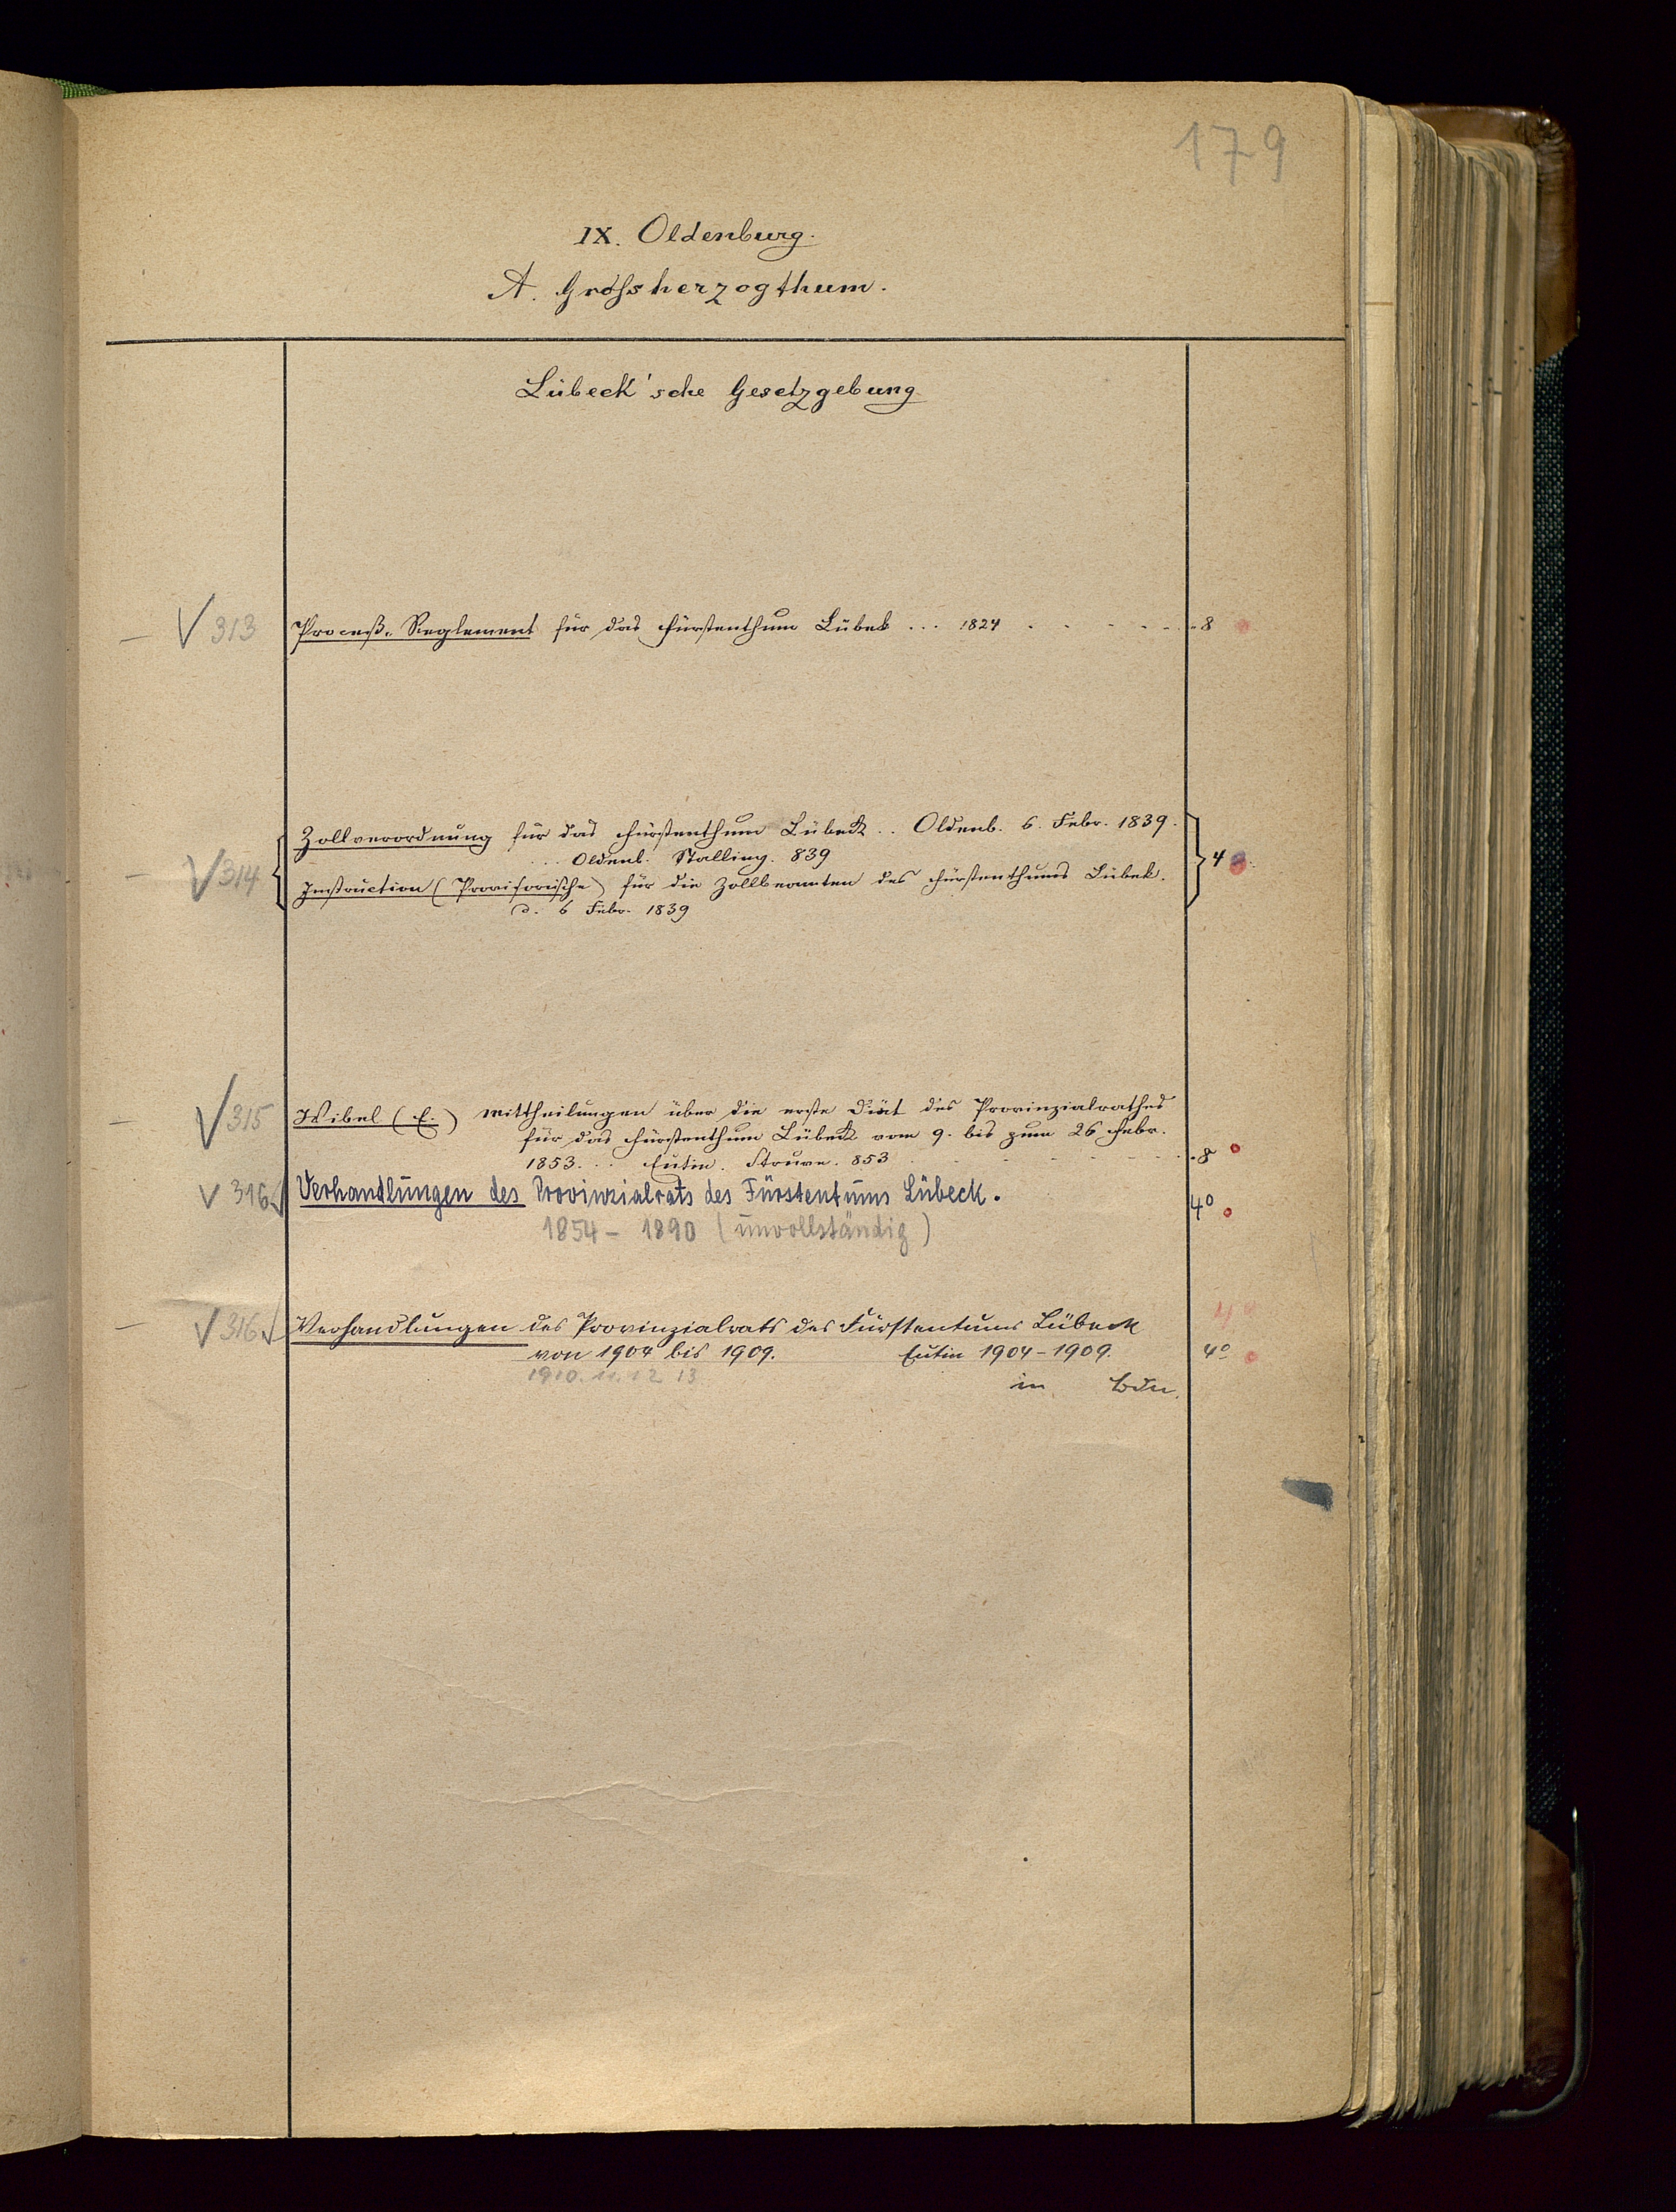 179
IX. Oldenburg.
A. Grossherzogthum.
Lübeck'sche Gesetzgebung
— √ 313 Proceß-Reglement für das Fürstenthum Lübek ... 1824 . . . . . . 8
Zollverordnung für das Fürstenthum Lübeck .. Oldenb. 6. Febr. 1839.
... Oldenb. Stalling. 839
— √ 314 4
Instruction (Provisorische) für die Zollbeamten des Fürstenthums Lübek.
d. 6 Febr. 1839
— √ 315 Wibel (E.) Mittheilungen über die erste Diät des Provinzialrathes
für das Fürstenthum Lübeck vom 9. bis zum 26 Febr.
1853. .. Eutin. Struve. 853 . . . . . . 8
√ 316 Verhandlungen des Provinzialrats des Fürstentums Lübeck. 4°
1854 - 1890 (unvollständig)
— √ 316 Verhandlungen des Provinzialrats des Fürstentums Lübeck 4
von 1904 bis 1909. Eutin 1904-1909. 4°
1910. 11. 12 13 in Bdn.